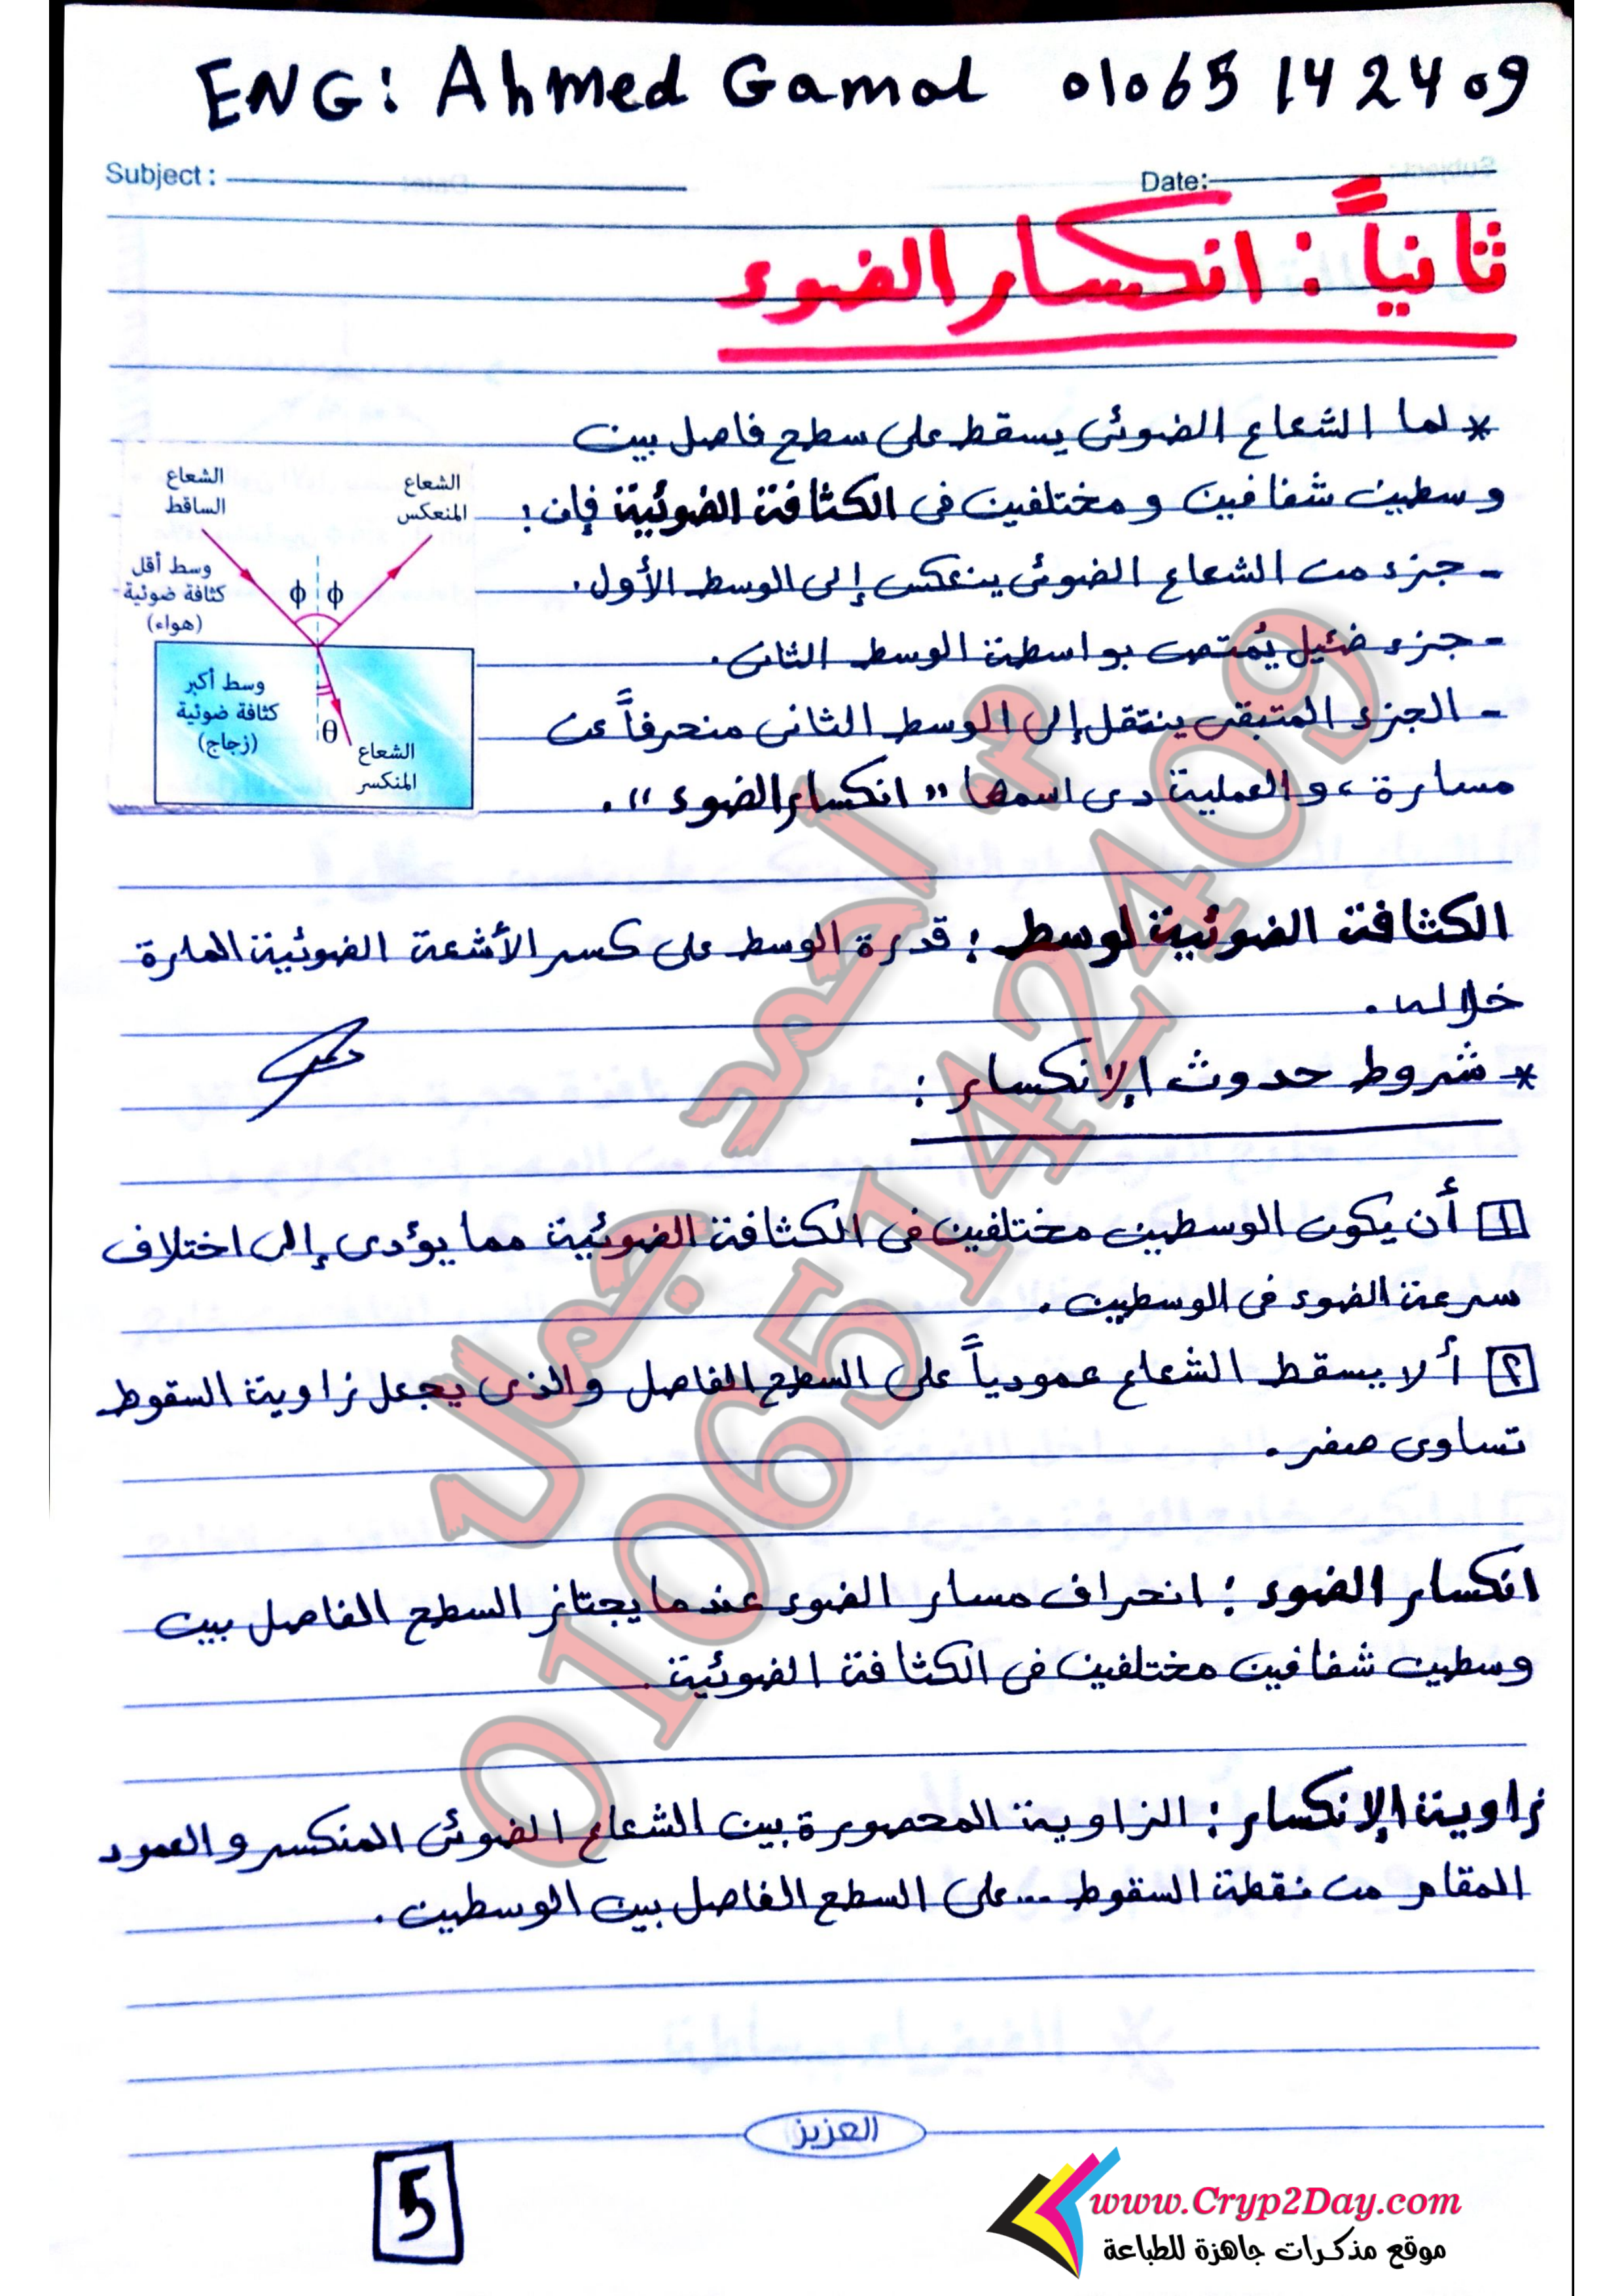 ENG: Ahmed Gamal 01065142409
Subject :
Date:
ثانياً : انكسار الضوء
* لما الشعاع الضوئى يسقط على سطح فاصل بين
وسطين شفافين و مختلفين فى الكثافة الضوئية فإن :
- جزء من الشعاع الضوئى ينعكس إلى الوسط الأول .
- جزء ضئيل يُمتص بواسطة الوسط الثانى .
- الجزء المتبقى ينتقل إلى الوسط الثانى منحرفاً عن
مسارة ، و العملية دى اسمها " انكسار الضوء " .
الشعاع الساقط
الشعاع المنعكس
وسط أقل
كثافة ضوئية
(هواء)
ϕ ϕ
وسط أكبر
كثافة ضوئية
(زجاج)
θ
الشعاع
المنكسر
الكثافة الضوئية لوسط : قدرة الوسط على كسر الأشعة الضوئية المارة
خلاله .
* شروط حدوث الإنكسار :
١ أن يكون الوسطين مختلفين فى الكثافة الضوئية مما يؤدى إلى اختلاف
سرعة الضوء فى الوسطين .
٢ ألا يسقط الشعاع عمودياً على السطح الفاصل والذى يجعل زاوية السقوط
تساوى صفر .
انكسار الضوء : انحراف مسار الضوء عندما يجتاز السطح الفاصل بين
وسطين شفافين مختلفين فى الكثافة الضوئية .
زاوية الإنكسار : الزاوية المحصورة بين الشعاع الضوئى المنكسر و العمود
المقام من نقطة السقوط .. على السطح الفاصل بين الوسطين .
م. أحمد جمال
01065142409
العزيز
5
www.Cryp2Day.com
موقع مذكرات جاهزة للطباعة